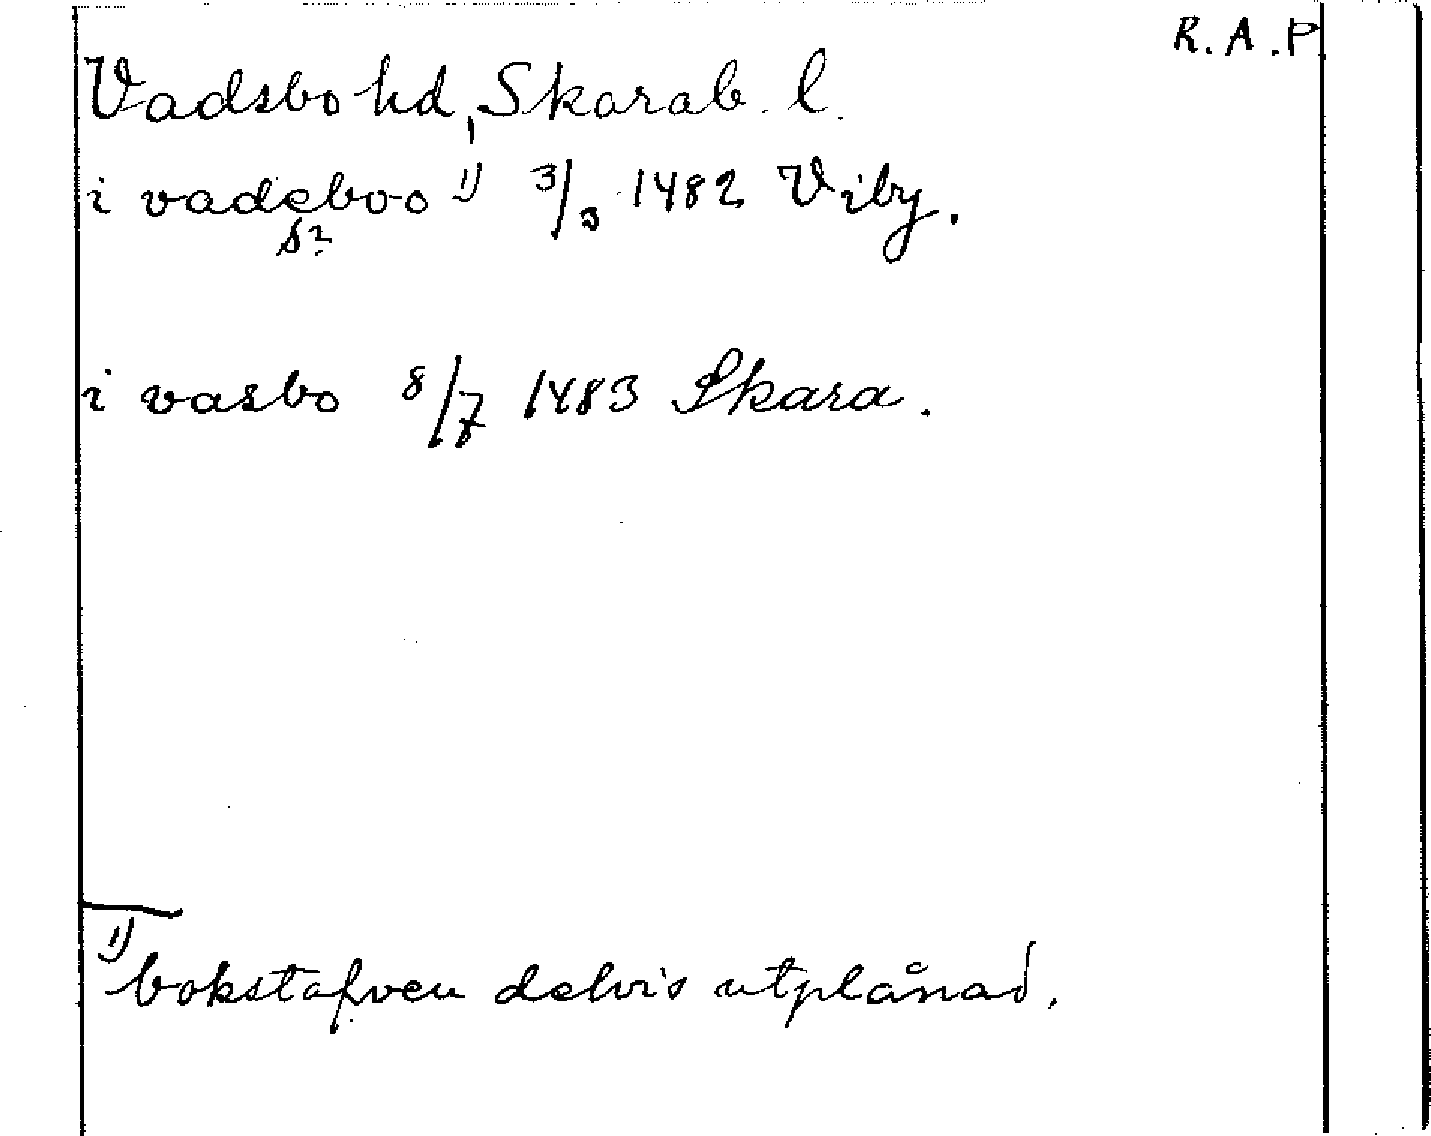 R.A.P.
Vadsbo hd, Skarab. l.
i vadeboo 1) 3/3 1482 Viby.
s?
i vasbo 8/7 1483 Skara.
1) bokstafven delvis utplånad.